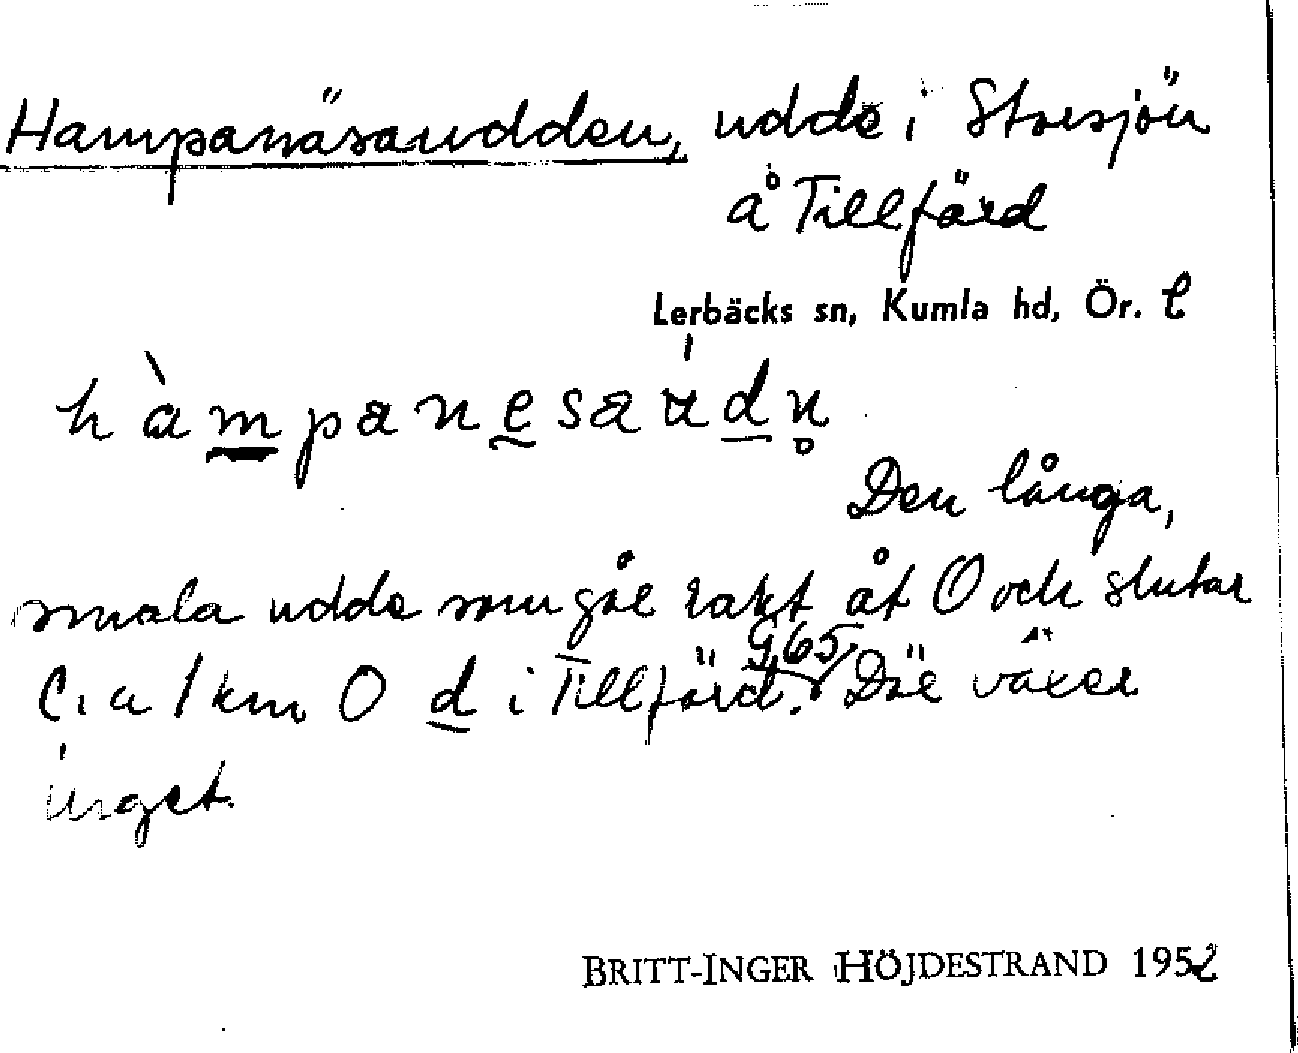 Hampanäsaudden, udde i Storsjön
å Tillfärd
Lerbäcks sn, Kumla hd, Ör. l
hàmpanesaúdn̥
Den långa,
smala udde som går rakt åt O och slutar
C:a 1 km O d i Tillförd. G,65, Där växer
inget.
BRITT-INGER HÖJDESTRAND 1952